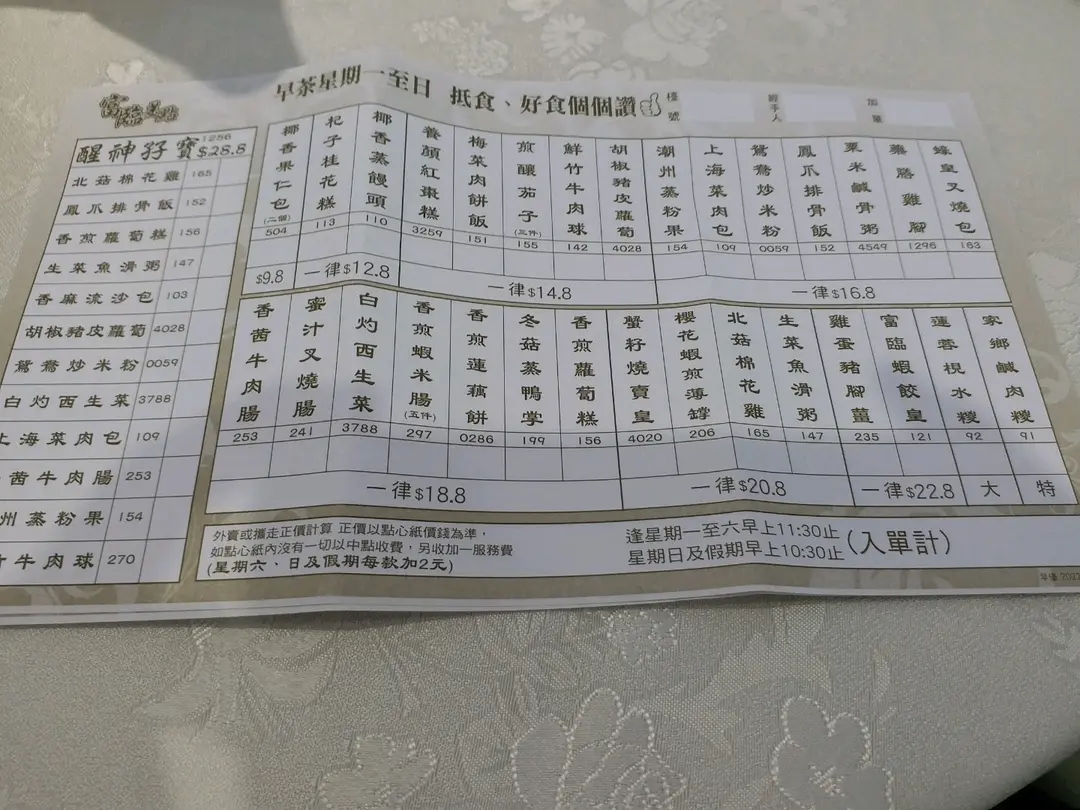 富臨美點
早茶星期一至日 抵食、好食個個讚
檯號
經手人
加單
醒神孖寶 1256 $28.8
北菇棉花雞 165
鳳爪排骨飯 152
香煎蘿蔔糕 156
生菜魚滑粥 147
香麻流沙包 103
胡椒豬皮蘿蔔 4028
鴛鴦炒米粉 0059
白灼西生菜 3788
上海菜肉包 109
茜牛肉腸 253
州蒸粉果 154
牛肉球 270
椰香果仁包(二個) 504
$9.8
杞子桂花糕 113
椰香蒸饅頭 110
一律$12.8
養顏紅棗糕 3259
梅菜肉餅飯 151
煎釀茄子(三件) 155
鮮竹牛肉球 142
胡椒豬皮蘿蔔 4028
一律$14.8
潮州蒸粉果 154
上海菜肉包 109
鴛鴦炒米粉 0059
鳳爪排骨飯 152
粟米鹹骨粥 4549
藥膳雞腳 1296
蜂皇叉燒包 163
一律$16.8
香茜牛肉腸 253
蜜汁叉燒腸 241
白灼西生菜 3788
香煎蝦米腸(五件) 297
香煎蓮藕餅 0286
冬菇蒸鴨掌 199
香煎蘿蔔糕 156
一律$18.8
蟹籽燒賣皇 4020
櫻花蝦煎薄罉 206
北菇棉花雞 165
生菜魚滑粥 147
一律$20.8
雞蛋豬腳薑 235
富臨蝦餃皇 121
一律$22.8
蓮蓉梘水糭 92
大
家鄉鹹肉糭 91
特
外賣或攜走正價計算 正價以點心紙價錢為準,
如點心紙內沒有一切以中點收費，另收加一服務費
(星期六、日及假期每款加2元)
逢星期一至六早上11:30止
星期日及假期早上10:30止
(入單計)